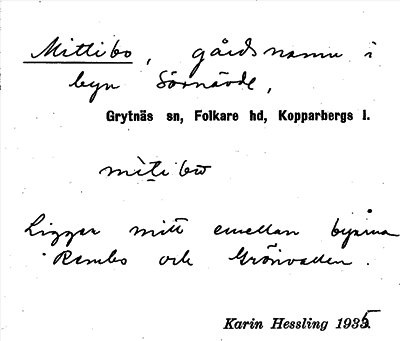 Mittibo, gårdsnamn i
byn Sörnävde,
Grytnäs sn, Folkare hd, Kopparbergs l.
mìtibω
Ligger mitt emellan byarna
Rembo och Grönvallen.
Karin Hessling 1935.